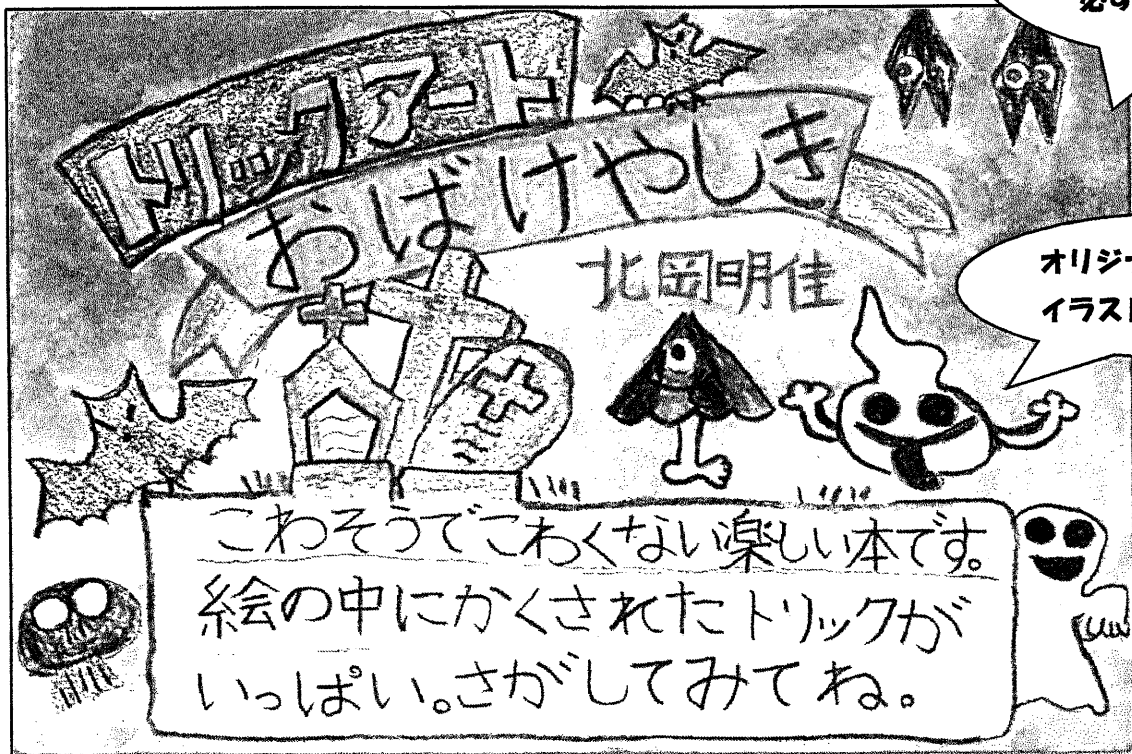 トリックアート
おばけやしき
北岡明佳
オリジ
イラスト
こわそうでこわくない楽しい本です。
絵の中にかくされたトリックが
いっぱい。さがしてみてね。